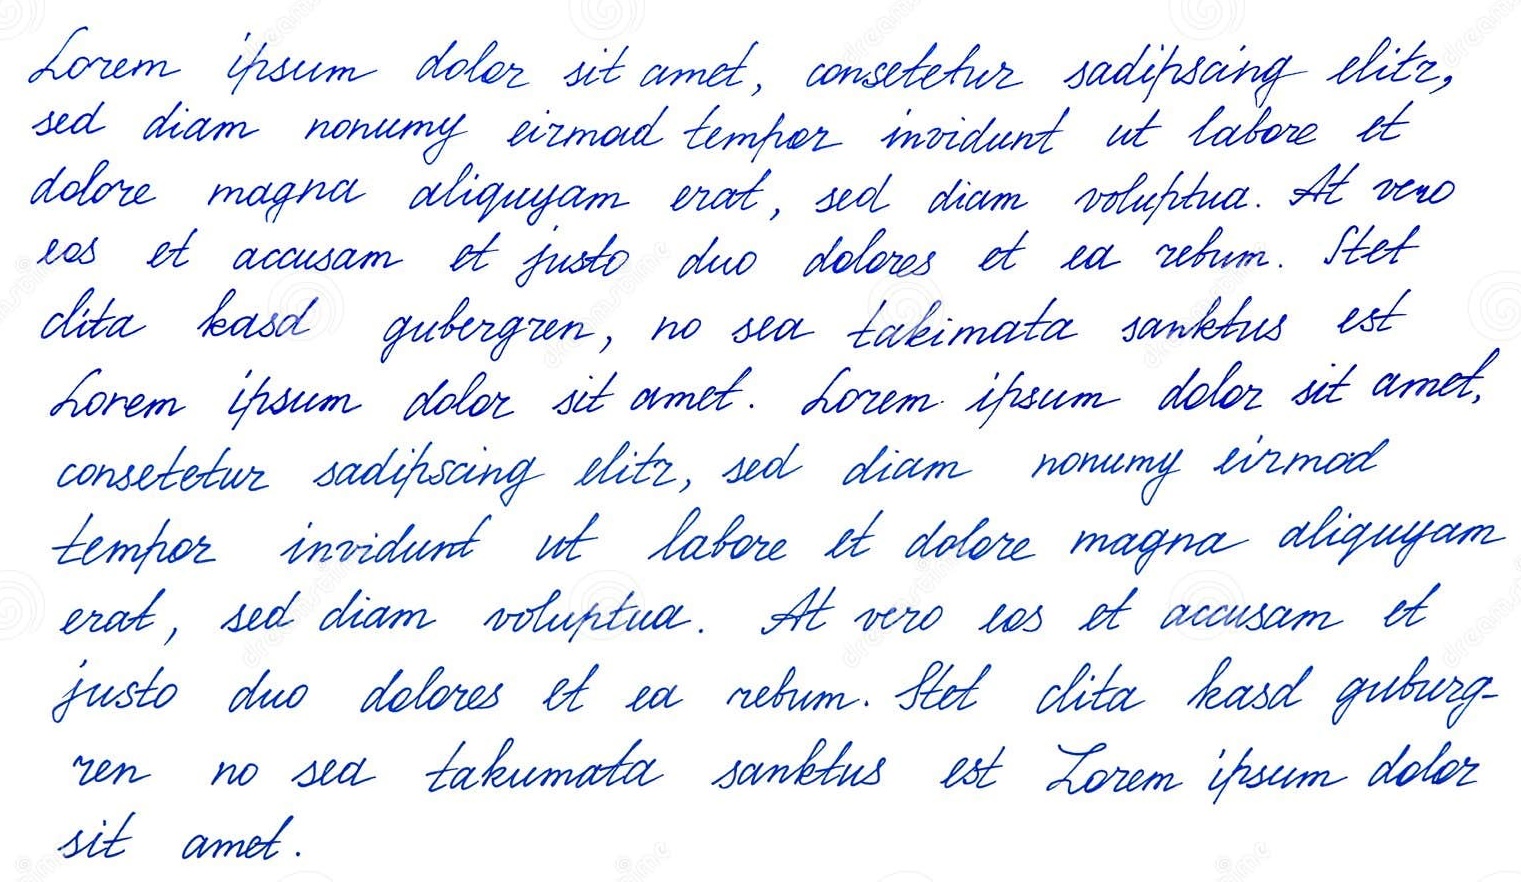 Lorem ipsum dolor sit amet, consetetur sadipscing elitr,
sed diam nonumy eirmod tempor invidunt ut labore et
dolore magna aliquyam erat, sed diam voluptua. At vero
eos et accusam et justo duo dolores et ea rebum. Stet
clita kasd gubergren, no sea takimata sanktus est
Lorem ipsum dolor sit amet. Lorem ipsum dolor sit amet,
consetetur sadipscing elitr, sed diam nonumy eirmod
tempor invidunt ut labore et dolore magna aliquyam
erat, sed diam voluptua. At vero eos et accusam et
justo duo dolores et ea rebum. Stet clita kasd guburg-
ren no sea takumata sanktus est Lorem ipsum dolor
sit amet.